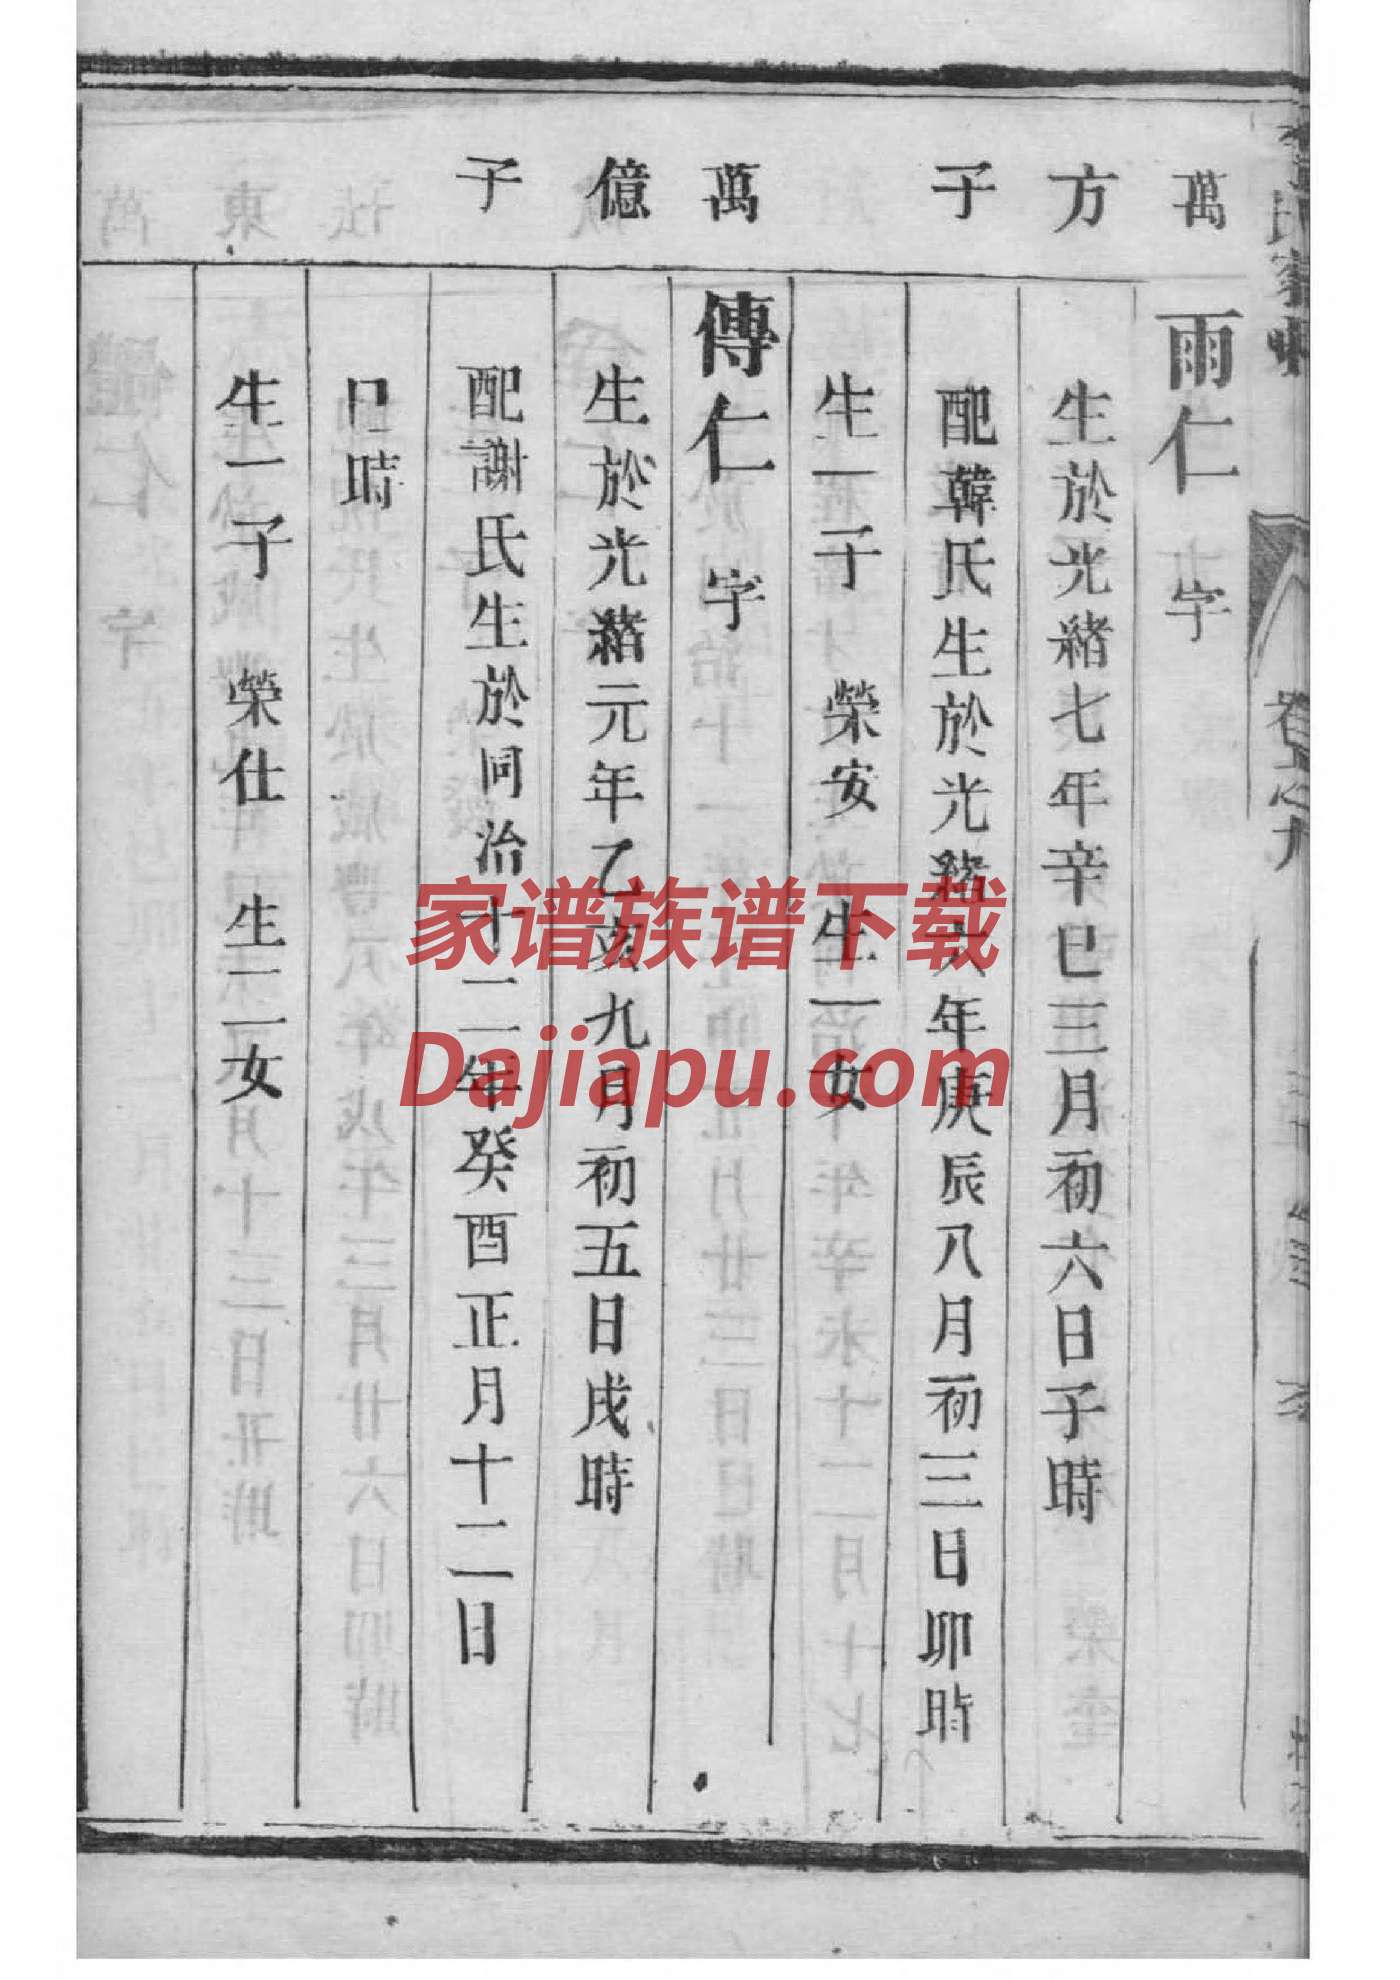 萬方子
雨仁 字
生於光緒七年辛巳三月初六日子時
配韓氏生於光緒六年庚辰八月初三日卯時
生一子 榮安 生一女
萬億子
傳仁 字
生於光緒元年乙亥九月初五日戌時
配謝氏生於同治十二年癸酉正月十二日
巳時
生一子 榮仕 生二女
家谱族谱下载
Dajiapu.com